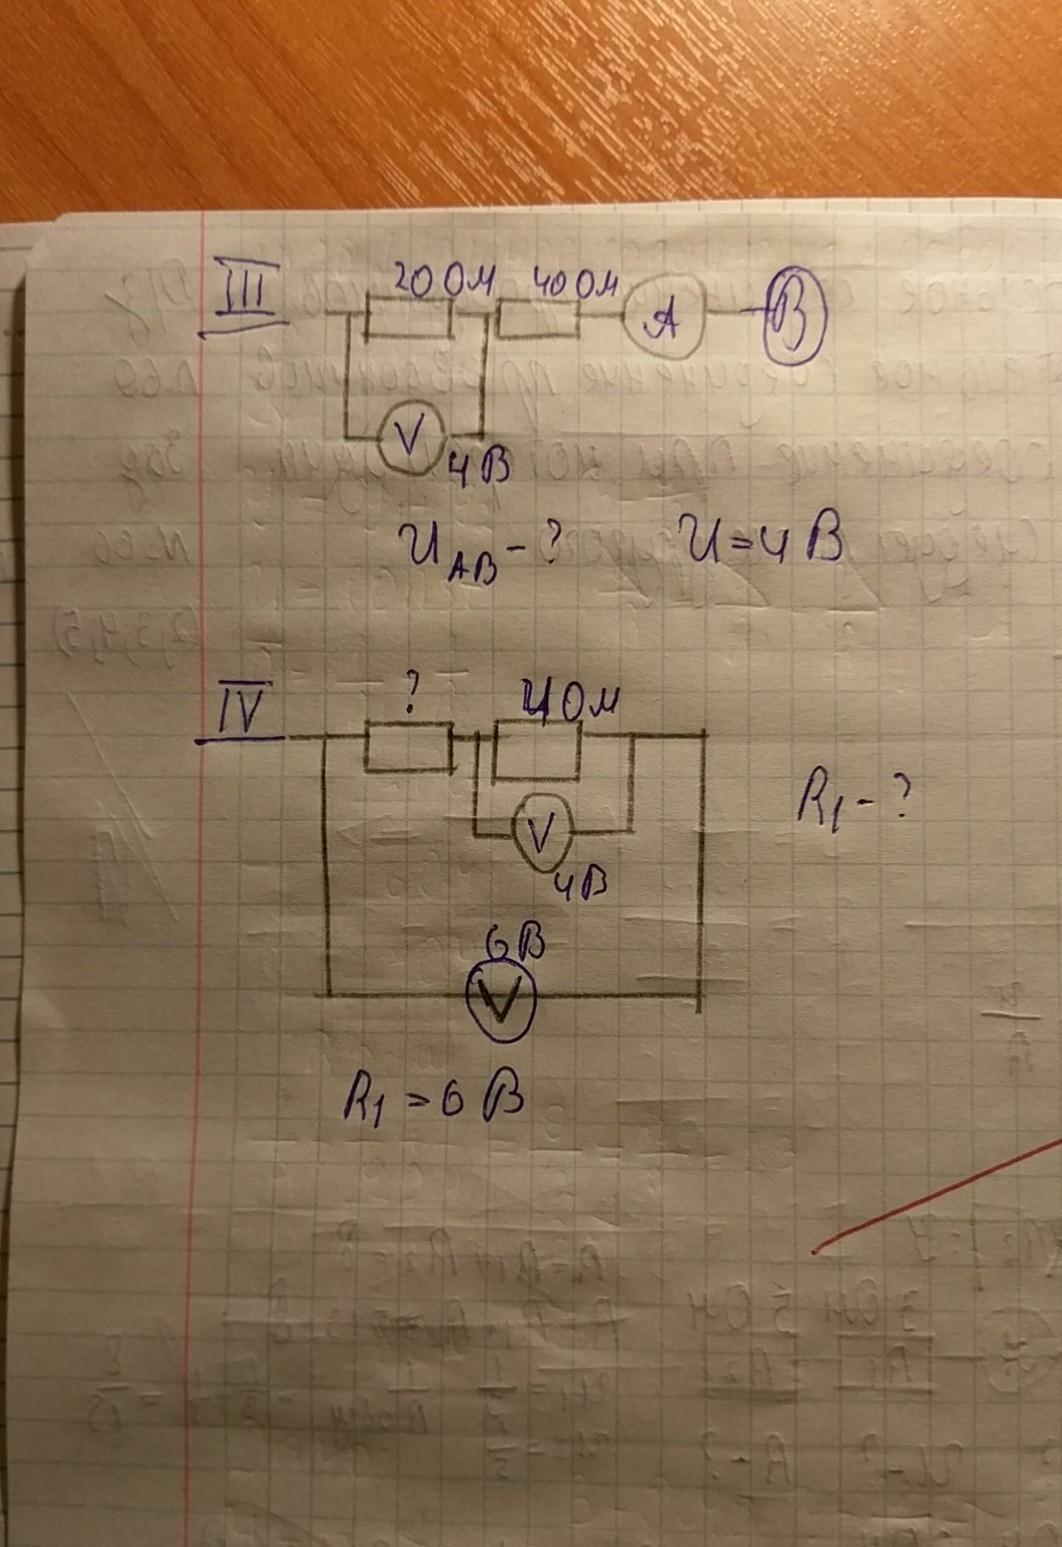 III
20 Ом 40 Ом
A B
V
4 В
U AB - ? U = 4 В
IV
? 4 Ом
V
4 В
R1 - ?
6 В
V
R1 = 6 В